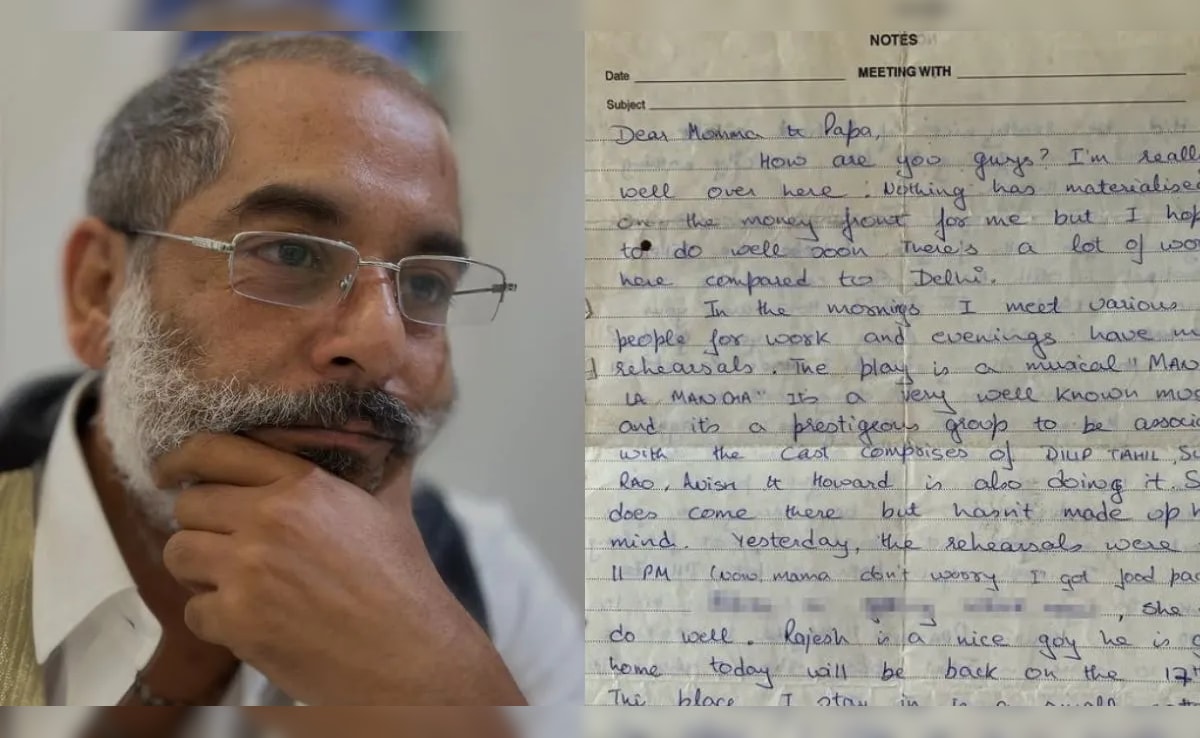 NOTES
Date MEETING WITH
Subject
Dear Momma & Papa,
How are you guys? I'm reall
well over here. Nothing has materialise
on the money front for me but I hop
to do well soon There's a lot of wor
here compared to Delhi.
In the mornings I meet various
people for work and evenings have m
rehearsals. The play is a musical "MAN
LA MANCHA" Its a very well known mus
and its a prestigeous group to be associ
with the cast comprises of DILIP TAHIL, SU
RAO, Avish & Howard is also doing it. S
does come there but hasn't made up h
mind. Yesterday, the rehearsals were
11 PM (wow, mama don't worry I got food pac
, she
do well. Rajesh is a nice goy he is g
home today will be back on the 17th
This place I stay in is a small